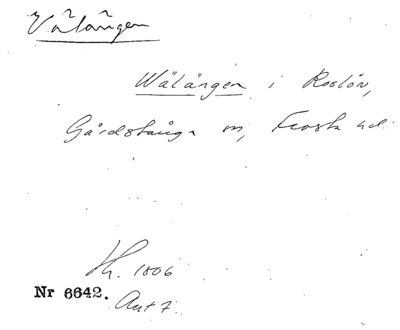 Välången
Wälången i Roslöv,
Gårdstånga sn, Frosta hd.
Kh. 1806
Nr 6642. Akt 7.